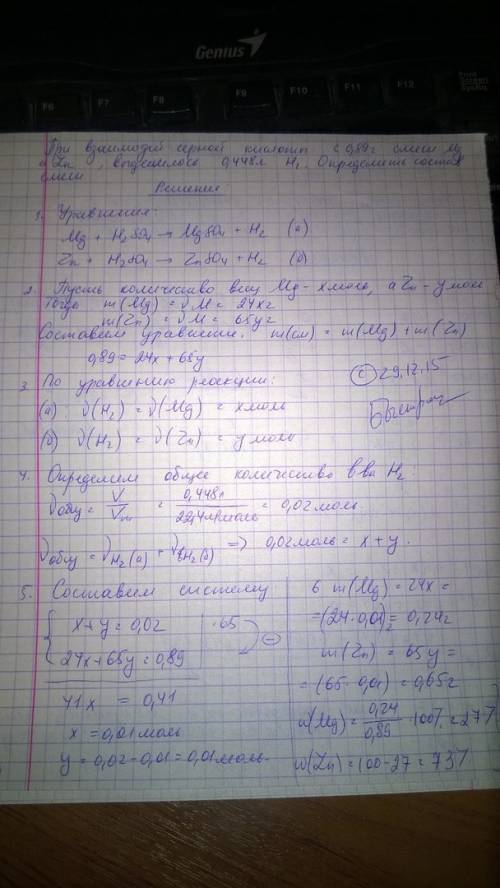 Genius
F6 F7 F8 F9 F10 F11 F12
При взаимодей серной кислоты с 0,89г смеси Mg
и Zn , выделилось 0,448л H₂. Определите состав
смеси
Решение
1. Уравнения:
Mg + H₂SO₄ → MgSO₄ + H₂ (а)
Zn + H₂SO₄ → ZnSO₄ + H₂ (б)
2. Пусть количество вещ Mg - x моль, а Zn - y моль
Тогда m(Mg) = νM = 24x г
m(Zn) = νM = 65y г
Составим уравнение: m(см) = m(Mg) + m(Zn)
0,89 = 24x + 65y
3. По уравнению реакции:
(а) ν(H₂) = ν(Mg) = x моль
(б) ν(H₂) = ν(Zn) = y моль
© 29.12.15
4. Определим общее количество в-ва H₂:
νобщ = V/Vm = 0,448л/22,4л/моль = 0,02 моль.
νобщ = νH₂(а) + νH₂(б) => 0,02 моль = x + y.
5. Составим систему
{ x + y = 0,02 | ·65
24x + 65y = 0,89 (-)
41x = 0,41
x = 0,01 моль
y = 0,02 - 0,01 = 0,01 моль
6 m(Mg) = 24x =
= (24 · 0,01) = 0,24г
m(Zn) = 65y =
= (65 · 0,01) = 0,65г
w(Mg) = 0,24/0,89 · 100% = 27%
w(Zn) = 100 - 27 = 73%